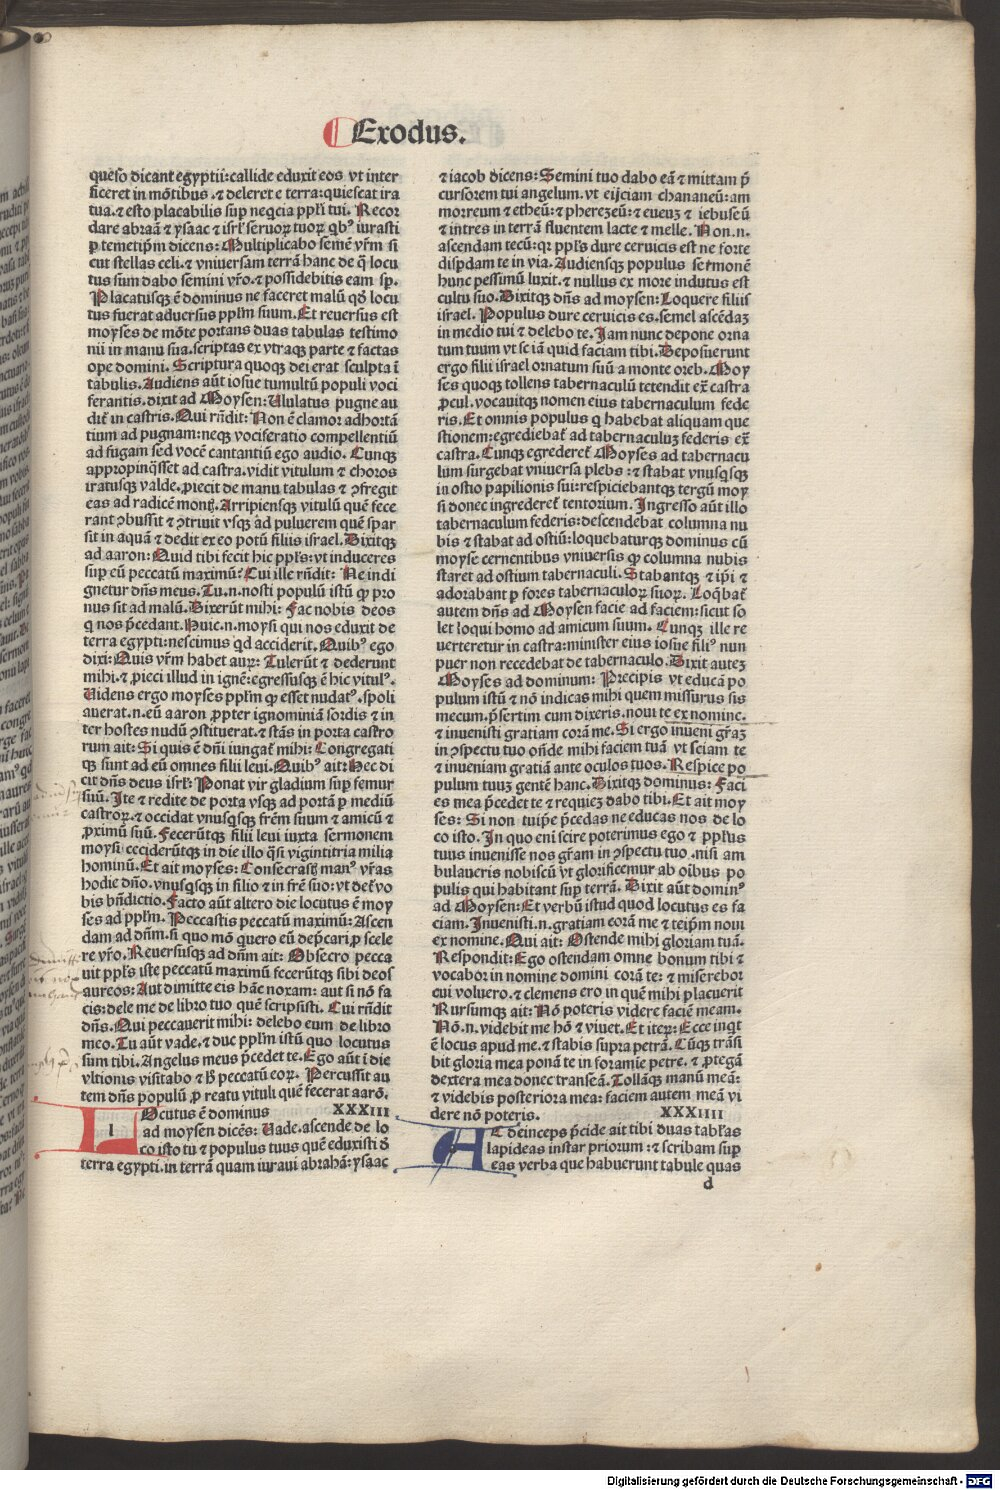 Exodus.
queso dicant egyptii: callide eduxit eos vt inter
ficeret in mōtibus .⁊ deleret e terra: quiescat ira
tua.⁊ esto placabilis sup neqcia pplī tui. Recor
dare abraā ⁊ ysaac ⁊ isrl' seruoꝝ tuoꝝ qbꝰ iurasti
ꝑ temetip̄m dicens: Multiplicabo semē vr̄m si
cut stellas celi.⁊ vniuersam terrā hanc de q̄ locu
tus sum dabo semini vr̄o.⁊ possidebitis eam sp.
Placatusqꝫ ē dominus ne faceret malū qď locu
tus fuerat aduersus pplm̄ suum. Et reuersus est
moyses de mōte portans duas tabulas testimo
nii in manu sua.scriptas ex vtraqꝫ parte ⁊ factas
ope domini. Scriptura quoqꝫ dei erat sculpta ī
tabulis. Audiens aūt iosue tumultū populi voci
ferantis.dixit ad Moysen: Ululatus pugne au
dit̄ in castris. Qui rn̄dit: Non ē clamor adhortā
tium ad pugnam: neqꝫ vociferatio compellentiū
ad fugam sed vocē cantantiū ego audio. Cunqꝫ
appropinq̄sset ad castra.vidit vitulum ⁊ choros
iratusqꝫ valde.ꝓiecit de manu tabulas ⁊ ꝯfregit
eas ad radicē montꝭ. Arripiensqꝫ vitulū quē fece
rant ꝯbussit ⁊ ꝯtriuit vsqꝫ ad puluerem quē spar
sit in aquā ⁊ dedit ex eo potū filiis israel. Dixitqꝫ
ad aaron: Quid tibi fecit hic ppls̄: vt induceres
sup eū peccatū maximū? Cui ille rn̄dit: Ne indi
gnetur dn̄s meus. Tu.n.nosti populū istū ꝙ pro
nus sit ad malū. Dixerūt mihi: Fac nobis deos
q nos p̄cedant. Huic.n.moysi qui nos eduxit de
terra egypti: nescimus qd acciderit. Quibꝰ ego
dixi: Quis vr̄m habet auꝝ: Tulerūt ⁊ dederunt
mihi.⁊ ꝓieci illud in ignē: egressusqꝫ ē hic vitulꝰ.
Uidens ergo moyses pplm̄ ꝙ esset nudatꝰ.spoli
auerat.n.eū aaron ꝓpter ignominiā sordis ⁊ in
ter hostes nudū ꝯstituerat.⁊ stās in porta castro
rum ait: Si quis ē dn̄i iungat̄ mihi: Congregati
qꝫ sunt ad eū omnes filii leui. Quibꝰ ait: Hec di
cit dn̄s deus isrl': Ponat vir gladium sup femur
suū. Ite ⁊ redite de porta vsqꝫ ad portā ꝑ mediū
castroꝝ.⁊ occidat vnusqꝫsqꝫ frēm suum ⁊ amicū ⁊
ꝓximū suū. Fecerūtqꝫ filii leui iuxta sermonem
moysi ceciderūtqꝫ in die illo q̄si vigintitria milia
hominū. Et ait moyses: Consecrastꝭ manꝰ vr̄as
hodie dn̄o.vnusqꝫsqꝫ in filio ⁊ in frē suo: vt det̄ vo
bis bn̄dictio. Facto aūt altero die locutus ē moy
ses ad pplm̄. Peccastis peccatū maximū: Ascen
dam ad dn̄m.si quo mō quero eū dep̄cari ꝓ scele
re vr̄o. Reuersusqꝫ ad dn̄m ait: Obsecro pecca
uit ppls̄ iste peccatū maximū feceruntqꝫ sibi deos
aureos: Aut dimitte eis hāc noxam: aut si nō fa
cis: dele me de libro tuo quē scripsisti. Cui rn̄dit
dn̄s. Qui peccauerit mihi: delebo eum de libro
meo. Tu aūt vade.⁊ duc pplm̄ istū quo locutus
sum tibi. Angelus meus p̄cedet te. Ego aūt ī die
vltionis visitabo ⁊ hͦ peccatū eoꝝ. Percussit au
tem dn̄s populū ꝓ reatu vituli quē fecerat aarō.
LOcutus ē dominus XXXIII
ad moysen dicēs: Uade.ascende de lo
co isto tu ⁊ populus tuus quē eduxisti ď
terra egypti.in terrā quam iuraui abrahā: ysaac
⁊ iacob dicens: Semini tuo dabo eā ⁊ mittam p̄
cursorem tui angelum.vt eijciam chananeū: am
morreum ⁊ etheū: ⁊ pherezeū: ⁊ eueuꝫ ⁊ iebuseū
⁊ intres in terrā fluentem lacte ⁊ melle. Non.n.
ascendam tecū: qꝛ ppls̄ dure ceruicis est ne forte
dispdam te in via. Audiensqꝫ populus sermonē
hunc pessimū luxit.⁊ nullus ex more indutus est
cultu suo. Dixitqꝫ dn̄s ad moysen: Loquere filiis
israel. Populus dure ceruicis es.semel ascēdaꝫ
in medio tui ⁊ delebo te. Jam nunc depone orna
tum tuum vt sciā quid faciam tibi. Deposuerunt
ergo filii israel ornatum suū a monte oreb. Moy
ses quoqꝫ tollens tabernaculū tetendit ext̄ castra
ꝓcul.vocauitqꝫ nomen eius tabernaculum fede
ris. Et omnis populus q habebat aliquam que
stionem: egrediebat̄ ad tabernaculuꝫ federis ext̄
castra. Cunqꝫ egrederet̄ Moyses ad tabernacu
lum surgebat vniuersa plebs: ⁊ stabat vnusqꝫsqꝫ
in ostio papilionis sui: respiciebantqꝫ tergū moy
si donec ingrederet̄ tentorium. Ingresso aūt illo
tabernaculum federis: descendebat columna nu
bis ⁊ stabat ad ostiū: loquebaturqꝫ dominus cū
moyse cernentibus vniuersis ꝙ columna nubis
staret ad ostium tabernaculi. Stabantqꝫ ⁊ ip̄i ⁊
adorabant ꝑ fores tabernaculoꝝ suoꝝ. Loq̄bat̄
autem dn̄s ad Moysen facie ad faciem: sicut so
let loqui homo ad amicum suum. Cunqꝫ ille re
uerteretur in castra: minister eius iosue filiꝰ nun
puer non recedebat de tabernaculo. Dixit auteꝫ
Moyses ad dominum: Precipis vt educā po
pulum istū ⁊ nō indicas mihi quem missurus sis
mecum.p̄sertim cum dixeris.noui te ex nomine.
⁊ inuenisti gratiam corā me. Si ergo inueni gr̄aꝫ
in ꝯspectu tuo onde mihi faciem tuā vt sciam te
⁊ inueniam gratiā ante oculos tuos. Respice po
pulum tuuꝫ gentē hanc. Dixitqꝫ dominus: Faci
es mea p̄cedet te ⁊ requieꝫ dabo tibi. Et ait moy
ses: Si non tuip̄e p̄cedas ne educas nos de lo
co isto. In quo eni scire poterimus ego ⁊ ppl̄us
tuus inuenisse nos gr̄am in ꝯspectu tuo.nisi am
bulaueris nobiscū vt glorificemur ab oībus po
pulis qui habitant sup terrā. Dixit aūt dominꝰ
ad Moysen: Et verbū istud quod locutus es fa
ciam. Inuenisti.n.gratiam corā me ⁊ teip̄m noui
ex nomine. Qui ait: Ostende mihi gloriam tuā.
Respondit: Ego ostendam omne bonum tibi ⁊
vocabor in nomine domini corā te: ⁊ miserebor
cui voluero.⁊ clemens ero in quē mihi placuerit
Rursumqꝫ ait: Nō poteris videre faciē meam.
Nō.n.videbit me hō ⁊ viuet. Et iteꝝ: Ecce inqt
ē locus apud me.⁊ stabis supra petrā. Cūqꝫ trāsi
bit gloria mea ponā te in foramie petre.⁊ ꝓtegā
dextera mea donec transeā. Tollāqꝫ manū meā:
⁊ videbis posteriora mea: faciem autem meā vi
dere nō poteris. XXXIIII
AC deinceps p̄cide ait tibi duas tabl̄as
lapideas instar priorum: ⁊ scribam sup
eas verba que habuerunt tabule quas
d
Digitalisierung gefördert durch die Deutsche Forschungsgemeinschaft - DFG